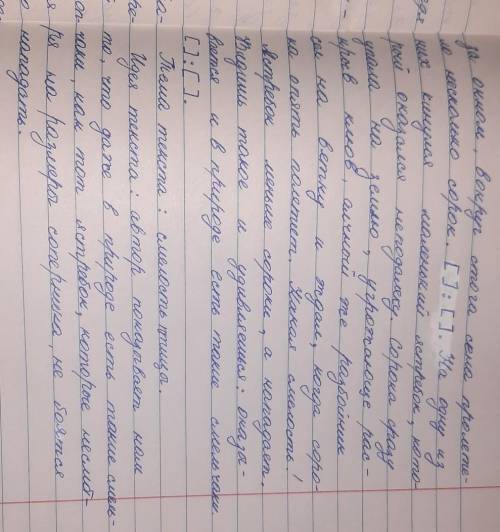 за окном, вокруг стога сена пролете-
ло несколько сорок. [ ] : [ ]. На одну из
них кинулся маленький ястребок, кото-
рый оказался неподалёку. Сорока сразу
упала на землю, угрожающе рас-
крыв клюв, алчный же разбойник
сел на ветку и ждал, когда соро-
ка опять полетит. Какая смелость!
Ястребок меньше сороки, а нападает.
Видишь такое и удивляешься: оказы-
вается и в природе есть такие смельчаки
[ ] : [ ].
Тема текста: смелость птицы.
Идея текста: автор показывает нам
то, что даже в природе есть такие смель-
чаки, как тот ястребок, которые несмот-
ря на размеры соперника, не боятся
нападать.